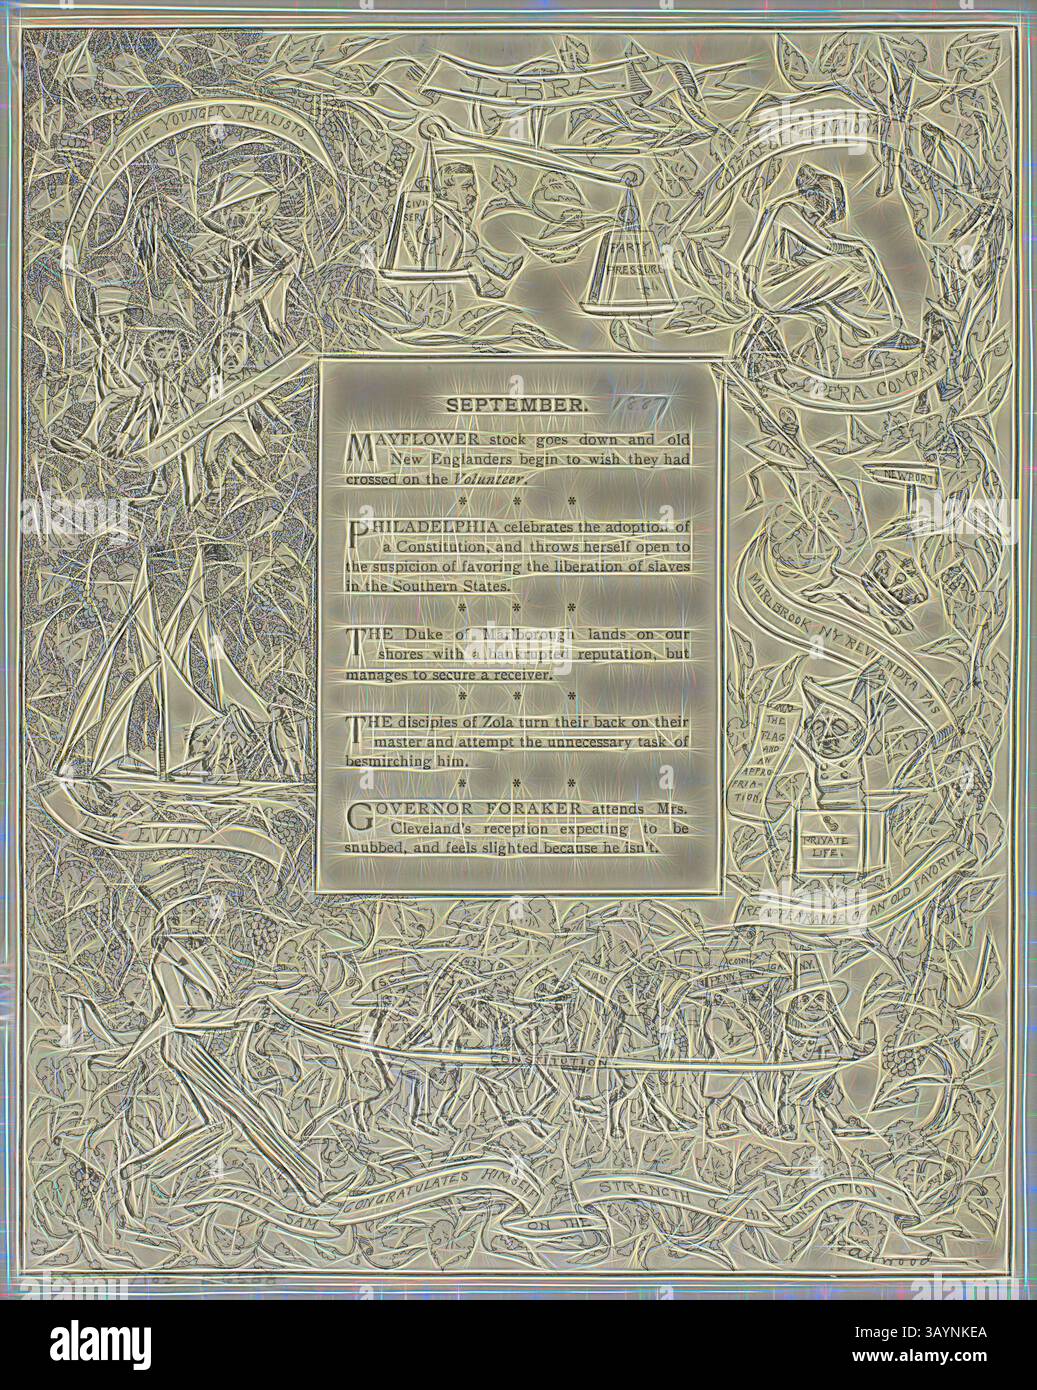 LIBRA
OF THE YOUNGER REALISTS
ZOLA
CIVIL
SERV
PARTY
PRESSURE
THE NATIONAL
OPERA COMPANY
SEPTEMBER. 1887
MAYFLOWER stock goes down and old
New Englanders begin to wish they had
crossed on the Volunteer.
* * *
PHILADELPHIA celebrates the adoption of
a Constitution, and throws herself open to
the suspicion of favoring the liberation of slaves
in the Southern States.
* * *
THE Duke of Marlborough lands on our
shores with a bankrupted reputation, but
manages to secure a receiver.
* * *
THE disciples of Zola turn their back on their
master and attempt the unnecessary task of
besmirching him.
* * *
GOVERNOR FORAKER attends Mrs.
Cleveland's reception expecting to be
snubbed, and feels slighted because he isn't.
NEWPORT
MARLBROOK N'Y REVIENDRA PAS
THE
FLAG
AND
AN
APPRO-
PRIA-
TION
PRIVATE
LIFE.
REAPPEARANCE OF AN OLD FAVORITE
THE EVENT.
CONN
PENN
N.Y.
CONSTITUTION
UNCLE SAM CONGRATULATES HIMSELF ON THE STRENGTH OF HIS CONSTITUTION.
Attwood
alamy
Image ID: 3AYNKEA
www.alamy.com